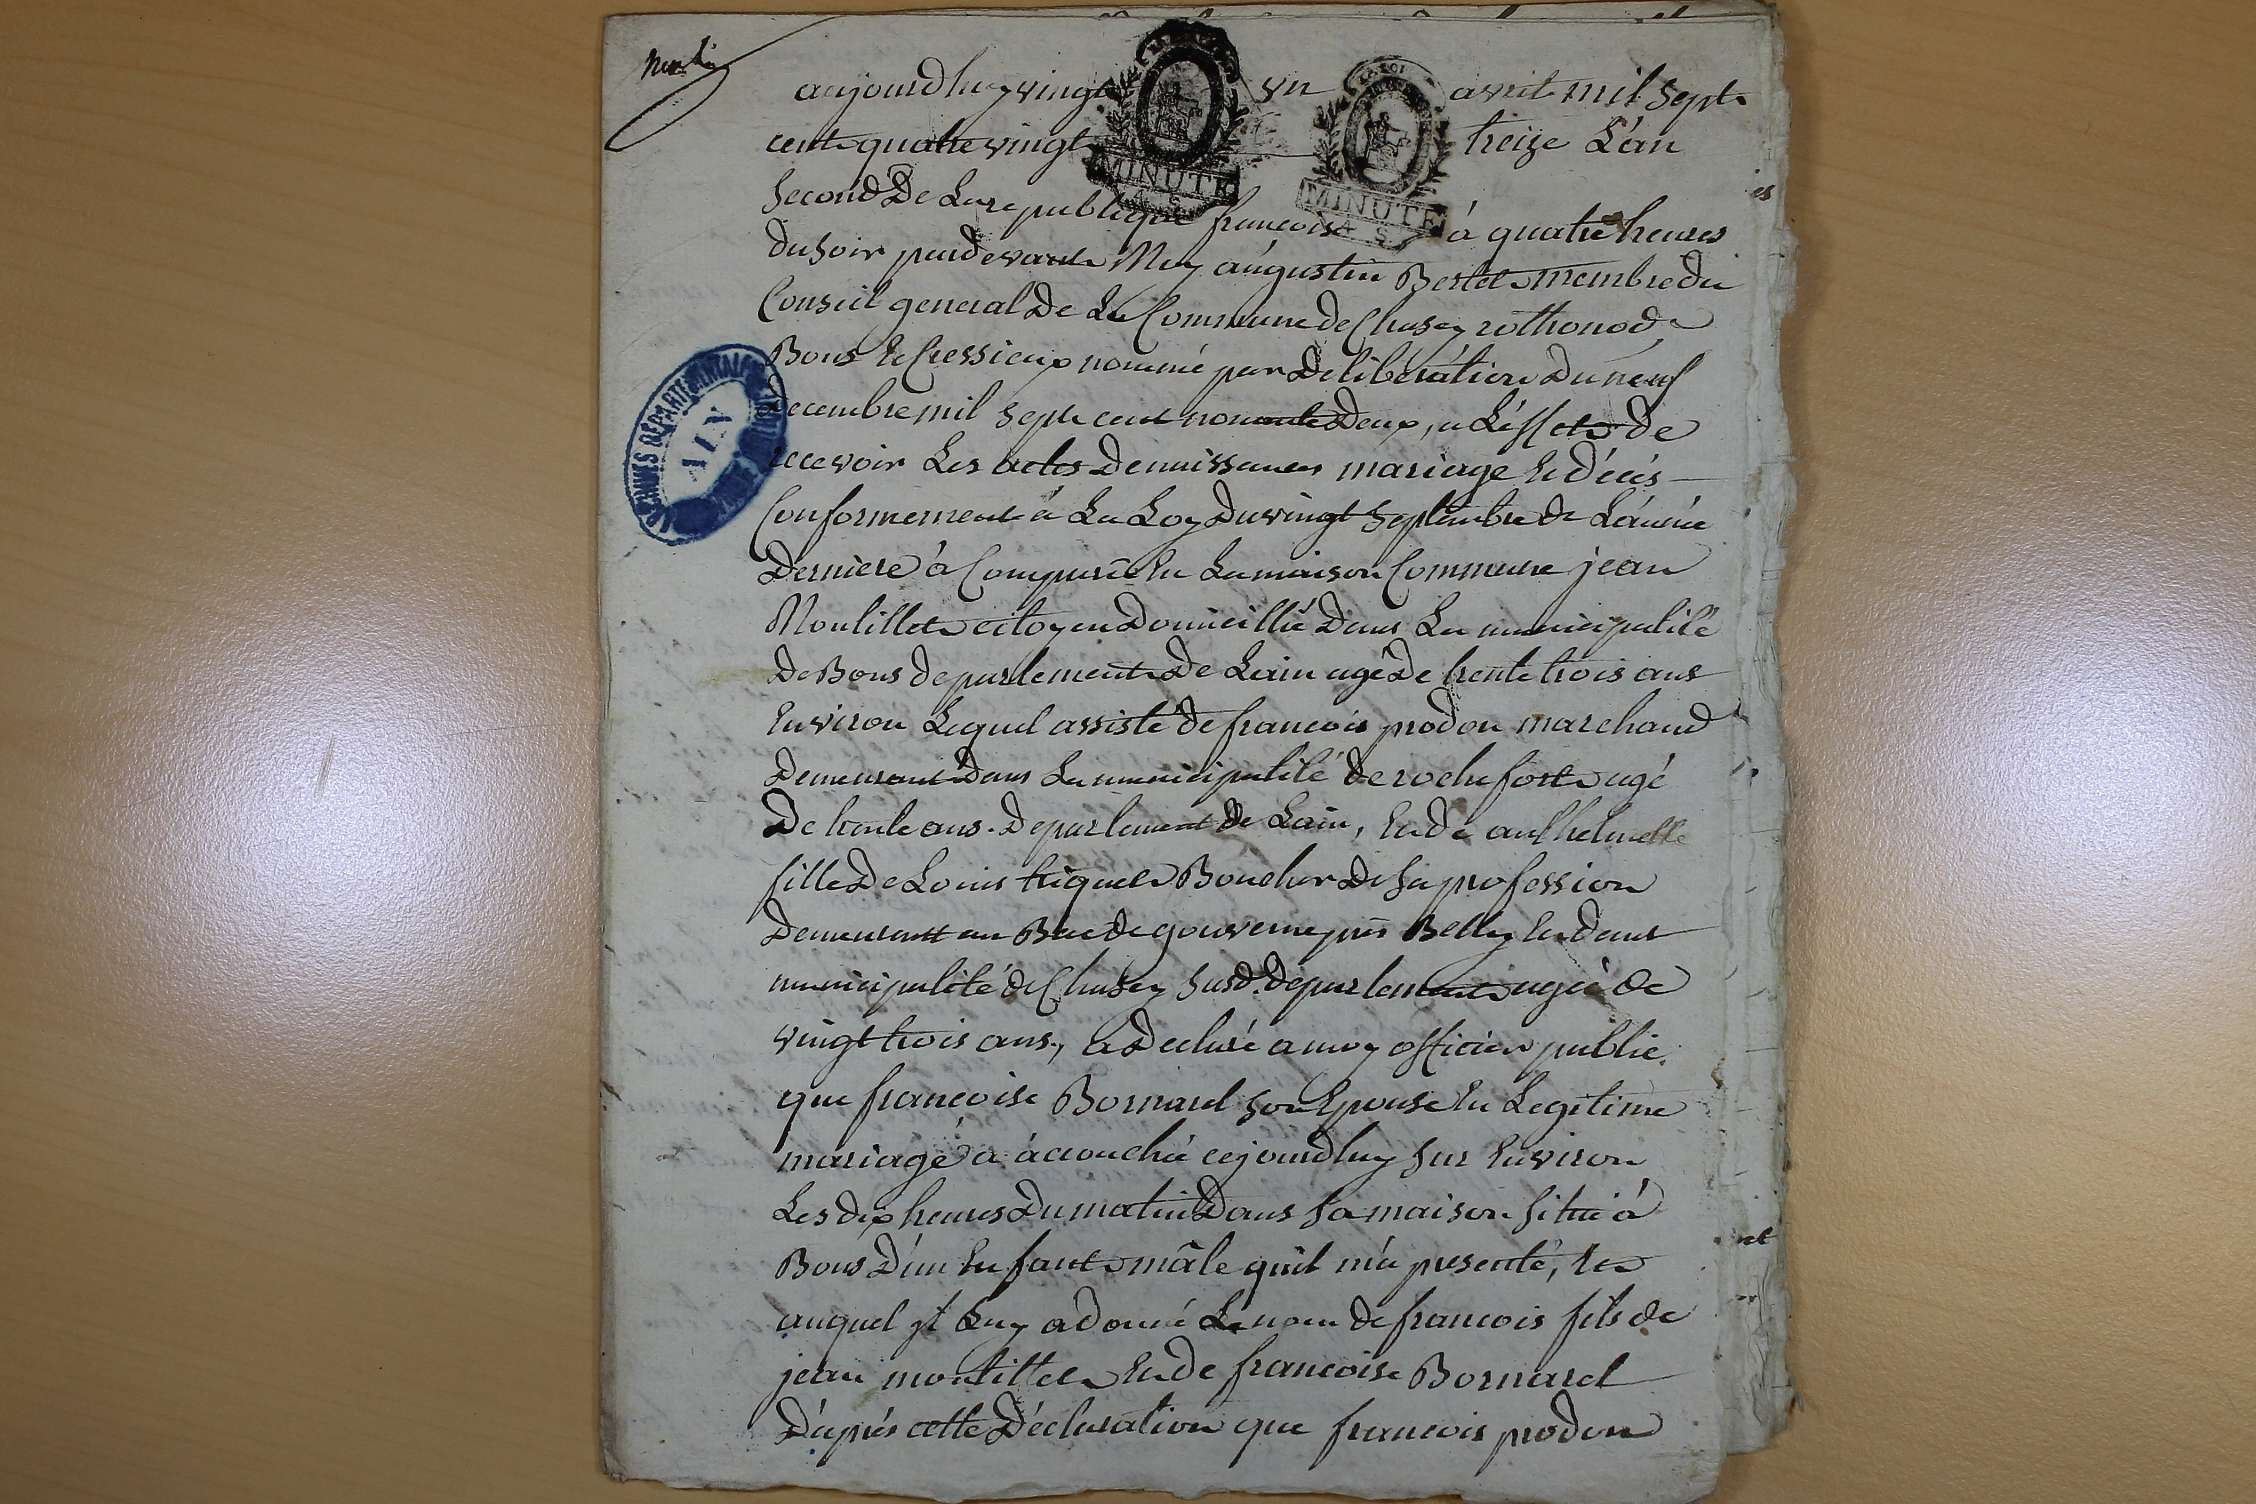 aujourdhuy vingt un avril mil sept
cent quatre vingt treize L'an
second De La republique francoise à quatre heures
du soir pardevant Moy augustin Bertet membre du
Conseil general De La Commune de Chasey rothonod
Bons et Cressieux nommé par Deliberation Du neuf
decembre mil sept cent nonante Deux, a L'effet de
recevoir Les actes De naissances mariage et décés
Conformement à La Loy Du vingt septembre de L'année
Derniere à Comparu En La maison Commune jean
Montillet citoyen Domicillié Dans La municipalité
De Bons departement De Lain agé De trente trois ans
Environ Lequel assisté de francois prodon marchand
Demeurant Dans La municipalité de rochefort agé
De trente ans. Departement De Lain, et de anthelmette
fille De Louis triquet Boucher De sa profession
Demeurant au Bac de gouverne prés Belley et dans
municipalité de Chasey susd. departement agée de
vingt trois ans, a Declaré a moy officier public
que francoise Bornarel son Epouse En Legitime
mariage a accouchée cejourdhuy sur Environ
Les dix heures Du matin Dans sa maison situé à
Bons D'un Enfant mâle qu'il m'a presenté, et
auquel jl Luy a donné Le nom de francois fils de
jean montillet et de francoise Bornarel
D'aprés cette Déclaration que francois prodon
MINUTE
4 S.
LA LOI
MINUTE
4 S.
ARCHIVES DÉPARTEMENTALES
AIN